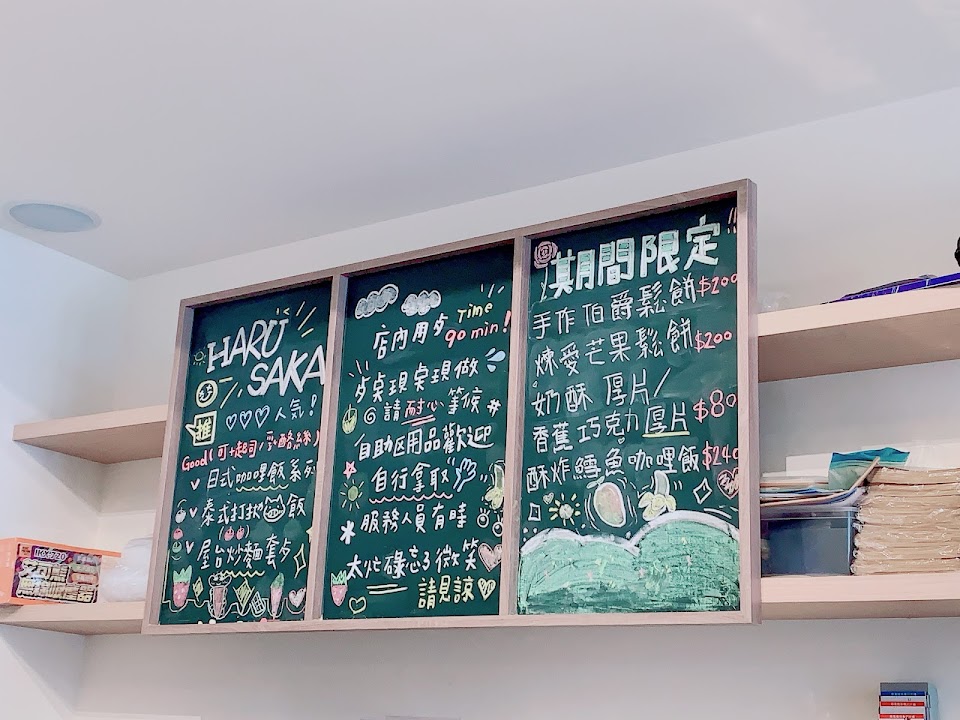 HARU
SAKA
必
推
♡♡♡人氣!
Good!(可+起司/乳酪絲)
日式咖哩飯系列
泰式打拋飯
屋台炒麵套歺
店內用歺 Time
90 min!
歺桌現桌現做
請耐心等候
自助區用品歡迎
自行拿取
服務人員有時
太忙碌忘了微笑
請見諒
期間限定!!
手作伯爵鬆餅$200
煉愛芒果鬆餅$200
奶酥厚片/
香蕉巧克力厚片$80
酥炸鱈魚咖哩飯$240